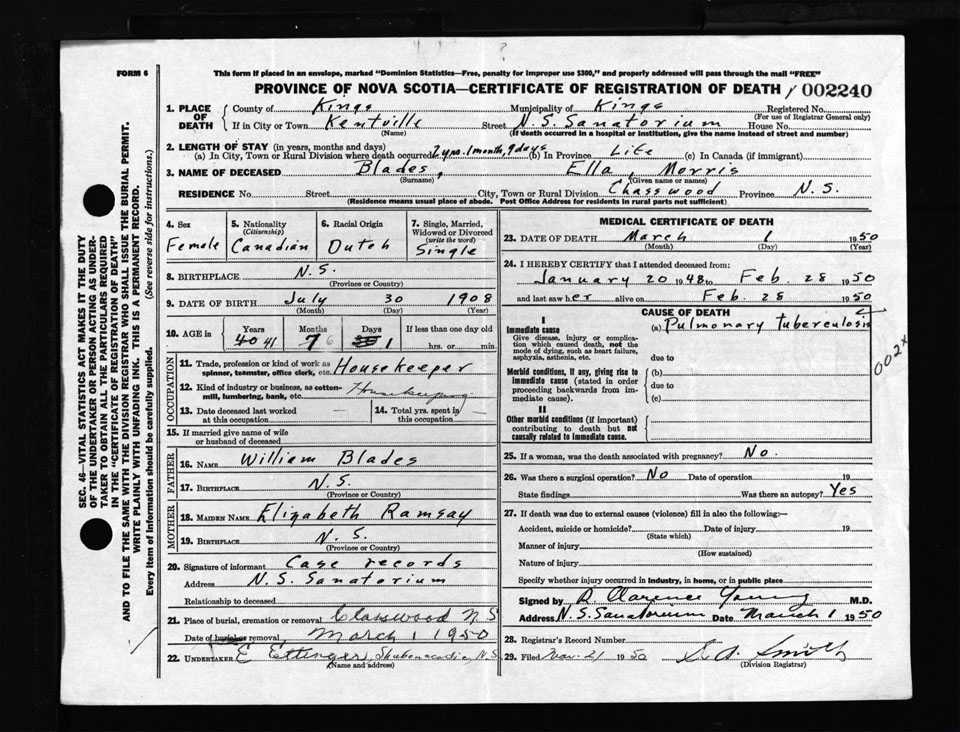 FORM 6
This form if placed in an envelope, marked "Dominion Statistics—Free, penalty for improper use $300," and properly addressed will pass through the mail "FREE"
PROVINCE OF NOVA SCOTIA—CERTIFICATE OF REGISTRATION OF DEATH 002240
1. PLACE OF DEATH County of Kings Municipality of Kings Registered No.
(For use of Registrar General only)
If in City or Town Kentville Street N.S. Sanatorium House No.
(Name) (If death occurred in a hospital or institution, give the name instead of street and number)
2. LENGTH OF STAY (in years, months and days)
(a) In City, Town or Rural Division where death occurred 2 yrs. 1 month, 9 days (b) In Province Life (c) In Canada (if immigrant)
3. NAME OF DECEASED Blades, Ella, Morris
(Surname) (Given name or names)
RESIDENCE No. Street City, Town or Rural Division Chasswood Province N.S.
(Residence means usual place of abode. Post Office Address for residents in rural parts not sufficient)
4. Sex 5. Nationality (Citizenship) 6. Racial Origin 7. Single, Married, Widowed or Divorced (write the word)
Female Canadian Dutch Single
8. BIRTHPLACE N.S.
(Province or Country)
9. DATE OF BIRTH July 30 1908
(Month) (Day) (Year)
10. AGE in Years Months Days If less than one day old
40 41 7 6 1 hrs. or min.
OCCUPATION
11. Trade, profession or kind of work as spinner, teamster, office clerk, etc. Housekeeper
12. Kind of industry or business, as cotton-mill, lumbering, bank, etc. Housekeeping
13. Date deceased last worked at this occupation 14. Total yrs. spent in this occupation
15. If married give name of wife or husband of deceased
FATHER
16. NAME William Blades
17. BIRTHPLACE N.S.
(Province or Country)
MOTHER
18. MAIDEN NAME Elizabeth Ramsay
19. BIRTHPLACE N.S.
(Province or Country)
20. Signature of informant Case records
Address N.S. Sanatorium
Relationship to deceased
21. Place of burial, cremation or removal Elasswood N.S
Date of burial or removal, March 1 1950
22. UNDERTAKER E Ettinger, Shubenacadie, N.S.
(Name and address)
MEDICAL CERTIFICATE OF DEATH
23. DATE OF DEATH March 1 1950
(Month) (Day) (Year)
24. I HEREBY CERTIFY that I attended deceased from:
January 20 1948 to Feb. 28 1950
and last saw her alive on Feb. 28 1950
CAUSE OF DEATH
I
Immediate cause (a) Pulmonary tuberculosis
Give disease, injury or complication which caused death, not the mode of dying, such as heart failure, asphyxia, asthenia, etc. due to
002x
Morbid conditions, if any, giving rise to immediate cause (stated in order proceeding backwards from immediate cause). (b)
due to
(c)
II
Other morbid conditions (if important) contributing to death but not causally related to immediate cause.
25. If a woman, was the death associated with pregnancy? No.
26. Was there a surgical operation? No Date of operation 19
State findings Was there an autopsy? Yes
27. If death was due to external causes (violence) fill in also the following:—
Accident, suicide or homicide? Date of injury 19
(State which)
Manner of injury
(How sustained)
Nature of injury
Specify whether injury occurred in industry, in home, or in public place
Signed by R. Clarence Young M.D.
Address N.S. Sanatorium Date March 1 1950
28. Registrar's Record Number
29. Filed Mar. 21 1950 Smith
(Division Registrar)
SEC. 46—VITAL STATISTICS ACT MAKES IT THE DUTY
OF THE UNDERTAKER OR PERSON ACTING AS UNDER-
TAKER TO OBTAIN ALL THE PARTICULARS REQUIRED
IN THE "CERTIFICATE OF REGISTRATION OF DEATH"
AND TO FILE THE SAME WITH THE DIVISION REGISTRAR WHO SHALL ISSUE THE BURIAL PERMIT.
WRITE PLAINLY WITH UNFADING INK. THIS IS A PERMANENT RECORD.
Every item of Information should be carefully supplied. (See reverse side for instructions.)